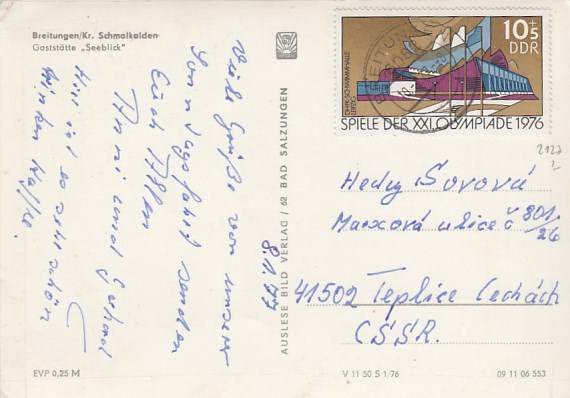 Breitungen/Kr. Schmalkalden
Gaststätte „Seeblick"
8.1.77
Viele Grüße von unserer
Sonntagsfahrt senden
Euch Allen
und
Hier ist es sehr schön
trinken Kaffee.
AUSLESE BILD VERLAG / 62 BAD SALZUNGEN
10+5
DDR
DHFK-SCHWIMMHALLE
LEIPZIG
SPIELE DER XXI. OLYMPIADE 1976
Hedy Sovová
Marxová ulice č 801/26
41502 Teplice Čechách
ČSSR.
EVP 0,25 M
V 11 50 S 1/76
09 11 06 553